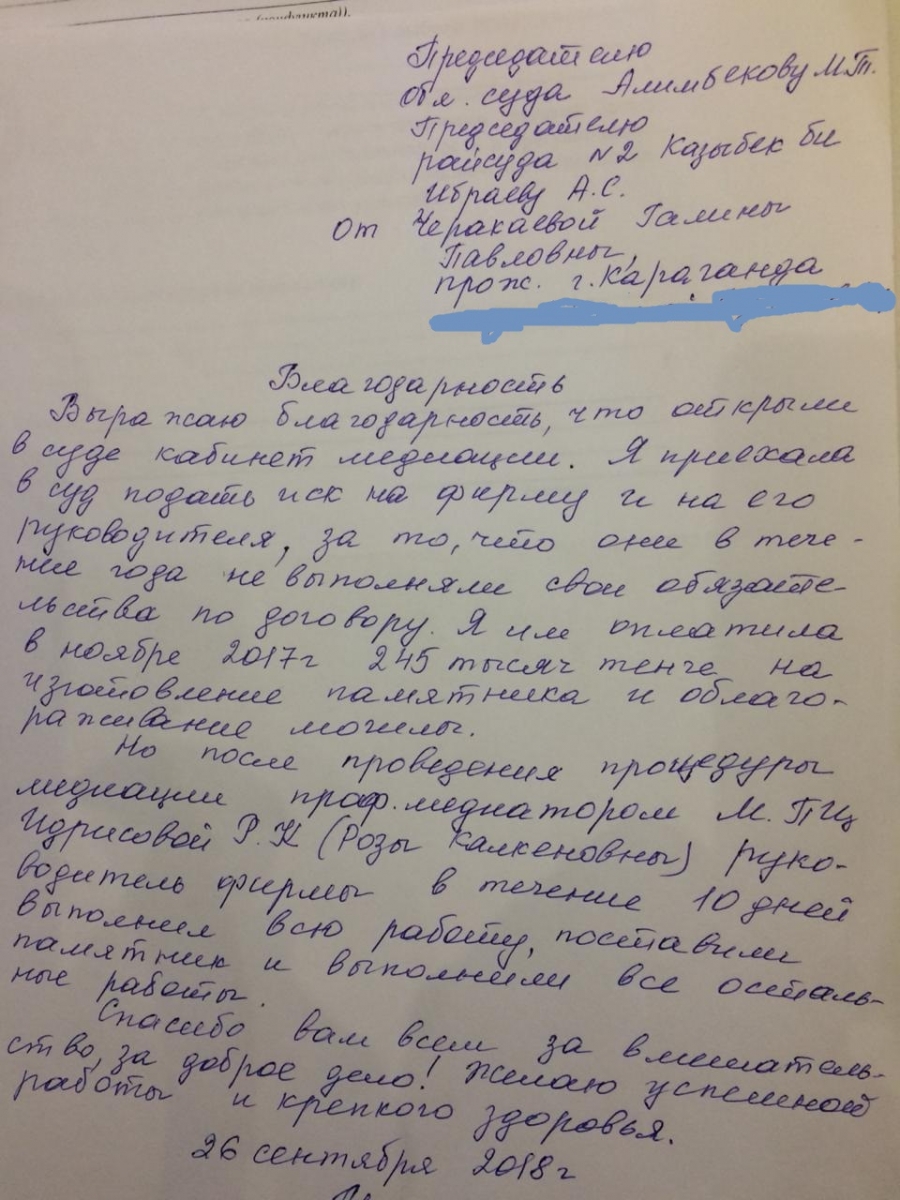 (конфликта)).
Председателю
обл. суда Алимбекову М.Т.
Председателю
райсуда №2 Казыбек би
Ибраеву А.С.
От Черакаевой Галины
Павловны,
прож. г. Караганда
Благодарность
Выражаю благодарность, что открыли
в суде кабинет медиации. Я приехала
в суд подать иск на фирму и на его
руководителя, за то, что они в тече-
ние года не выполняли свои обязате-
льства по договору. Я им оплатила
в ноябре 2017г 245 тысяч тенге на
изготовление памятника и облаго-
раживание могилы.
Но после проведения процедуры
медиации проф. медиатором М. ПЦ
Идрисовой Р.К (Розы Калкеновны) руко-
водитель фирмы в течение 10 дней
выполнил всю работу, поставили
памятник и выполнили все осталь-
ные работы.
Спасибо вам всем за вмешатель-
ство, за доброе дело! Желаю успешной
работы и крепкого здоровья.
26 сентября 2018г